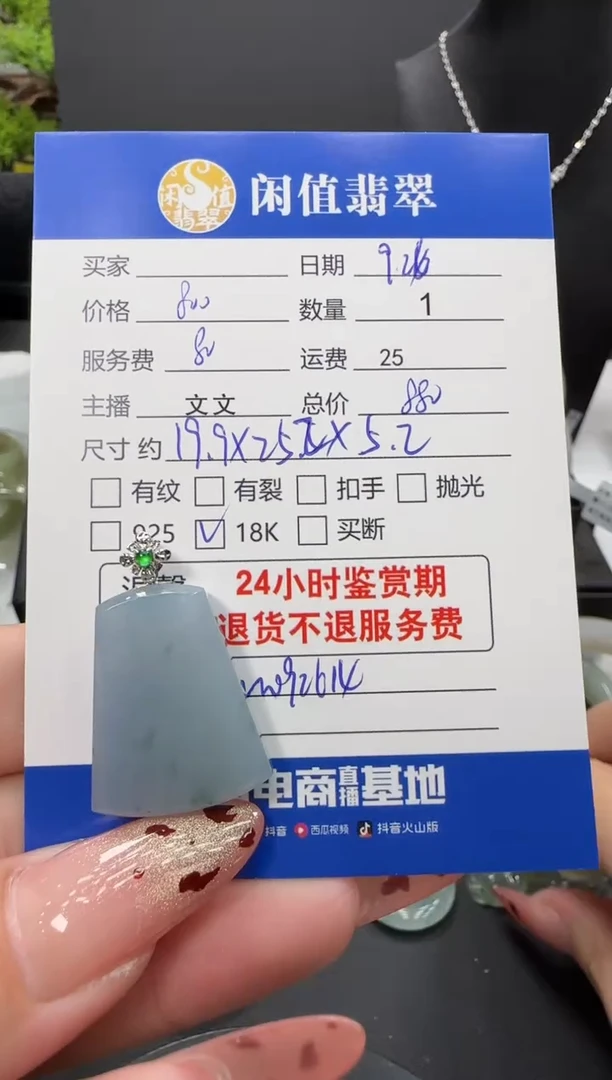 闲值翡翠
闲值翡翠
买家 日期 9.26
价格 800 数量 1
服务费 80 运费 25
主播 文文 总价 880
尺寸 约 19.9X25.2X5.2
有纹 有裂 扣手 抛光
925 18K 买断
24小时鉴赏期
退货不退服务费
92614
电商直播基地
抖音 西瓜视频 抖音火山版